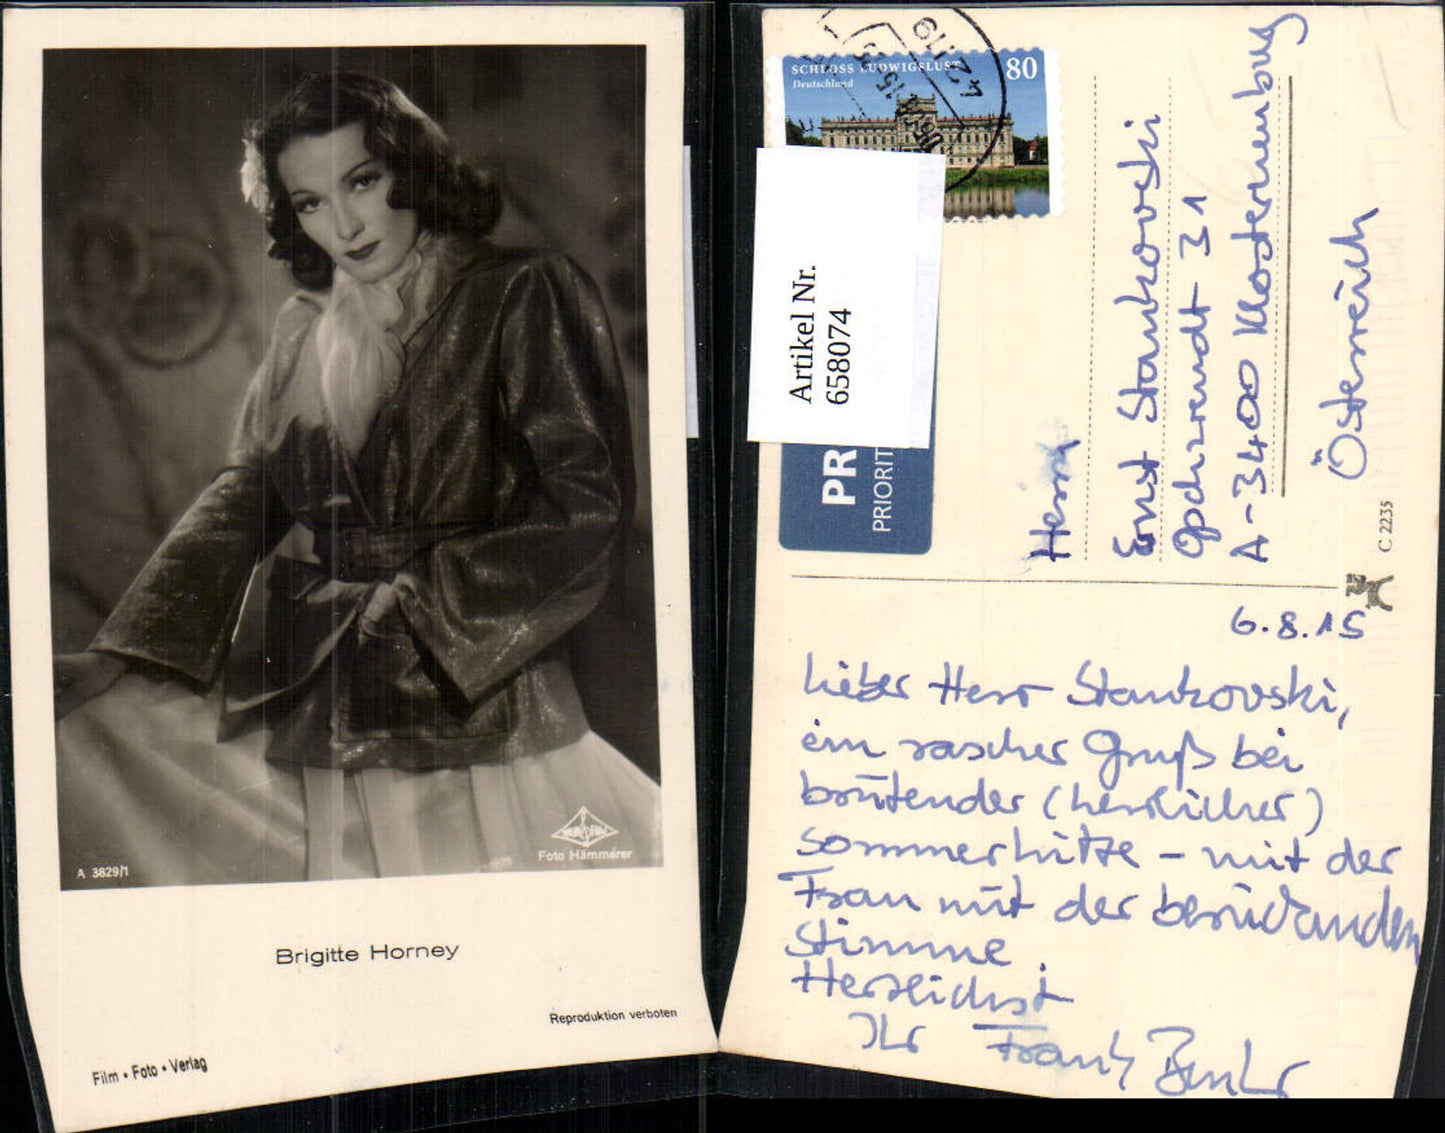 A 3829/1
Foto Hämmerer
Brigitte Horney
Reproduktion verboten
Film • Foto • Verlag
SCHLOSS LUDWIGSLUST
Deutschland
80
Artikel Nr.
658074
PR
PRIORIT
Herrn
Ernst Stankovski
Opchrendt 31
A-3400 Klosterneuburg
Österreich
C 2235
6.8.15
Lieber Herr Stankovski,
ein rascher Gruß bei
brütender (herrlicher)
Sommerhitze – mit der
Frau mit der berückenden
Stimme.
Herzlichst
Ihr Frank